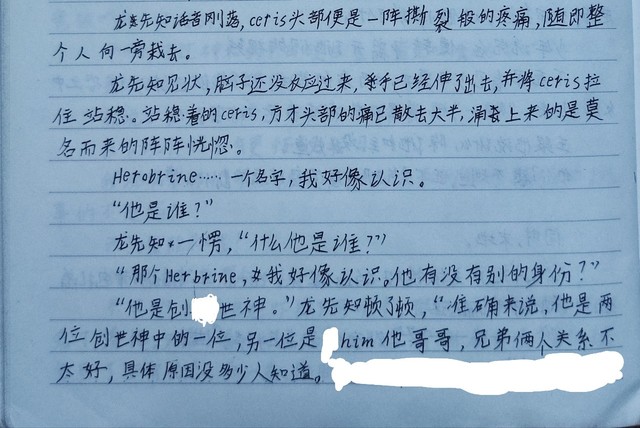 龙先知话音刚落，ceris头部便是一阵撕裂般的疼痛，随即整
个人向一旁栽去。
龙先知见状，脑子还没反应过来，垂手已经伸了出去，并将ceris拉
住站稳。站稳着的ceris，方才头部的痛已散去大半，涌上来的是莫
名而来的阵阵恍惚。
Herobrine……一个名字，我好像认识。
“他是谁？”
龙先知一愣，“什么他是谁？”
“那个Herbrine，我好像认识。他有没有别的身份？”
“他是创世神。”龙先知顿了顿，“准确来说，他是两
位创世神中的一位，另一位是him他哥哥，兄弟俩个关系不
太好，具体原因没多少人知道。